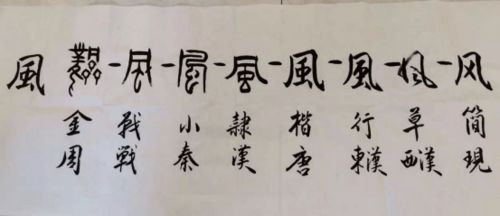 風 風 風 風 风 风
金周
戰
小秦
隸漢
楷唐
行東漢
草西漢
簡現